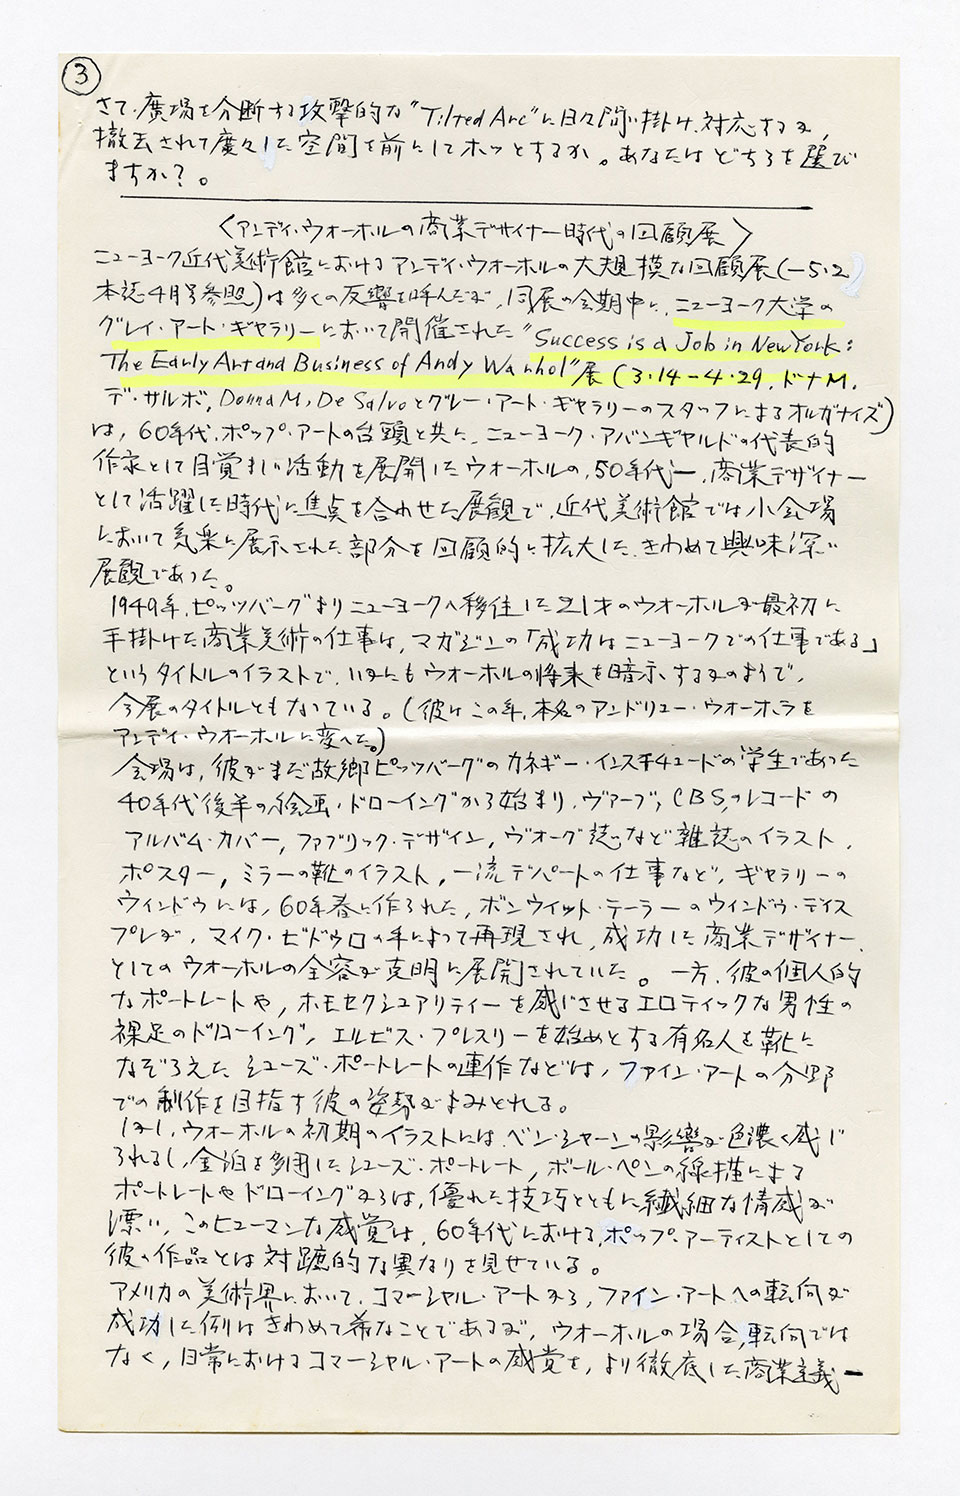 ③
さて、廣場を分断する攻撃的な"Tilted Arc"に日々問い掛け、対応するか、
撤去されて廣々した空間を前にしてホッとするか。あなたはどちらを選び
ますか?。
〈アンディ・ウォーホルの商業デザイナー時代の回顧展〉
ニューヨーク近代美術館におけるアンディ・ウォーホルの大規模な回顧展(−5・2
本誌4月号参照)は多くの反響を呼んだが、同展の会期中に、ニューヨーク大学の
グレイ・アート・ギャラリーにおいて開催された"Success is a Job in New York:
The Early Art and Business of Andy Warhol"展(3・14−4・29. ドナM.
デ・サルボ, Donna M, De Salvoとグレー・アート・ギャラリーのスタッフによるオルガナイズ)
は、60年代、ポップ・アートの台頭と共に、ニューヨーク・アバンギャルドの代表的
作家として目覚ましい活動を展開したウォーホルの、50年代―、商業デザイナー
として活躍した時代に焦点を合わせた展観で、近代美術館では小会場
において気楽に展示された部分を回顧的に拡大した、きわめて興味深い
展観であった。
1949年、ピッツバーグよりニューヨークへ移住した21才のウォーホルが最初に
手掛けた商業美術の仕事は、マガジンの「成功はニューヨークでの仕事である」
というタイトルのイラストで、いかにもウォーホルの将来を暗示するかのようで、
今展のタイトルともなっている。(彼はこの年、本名のアンドリュー・ウォーホラを
アンディ・ウォーホルに変へた。)
会場は、彼がまだ故郷ピッツバーグのカネギー・インスチチュードの学生であった
40年代後半の絵画・ドローイングから始まり、ヴァーブ、CBS、のレコードの
アルバム・カバー, ファブリック・デザイン, ヴォーグ誌など雑誌のイラスト,
ポスター, ミラーの靴のイラスト, 一流デパートの仕事など, ギャラリーの
ウィンドウには、60年春に作られた、ボンウィット・テーラーのウィンドウ・ディス
プレが、マイク・ビドゥロの手によって再現され、成功した商業デザイナー
としてのウォーホルの全容が克明に展開されていた。一方、彼の個人的
なポートレートや, ホモセクシュアリティーを感じさせるエロティックな男性の
裸足のドローイング, エルビス・プレスリーを始めとする有名人を靴に
なぞらえたシューズ・ポートレートの連作などは、ファイン・アートの分野
での制作を目指す彼の姿勢がよみとれる。
しかし、ウォーホルの初期のイラストには、ベン・シャーンの影響が色濃く感じ
られるし、金泊を多用したシューズ・ポートレート, ボール・ペンの線描による
ポートレートやドローイングからは、優れた技巧とともに繊細な情感が
漂い、このヒューマンな感覚は、60年代における、ポップ・アーティストとしての
彼の作品とは対蹠的な異なりを見せている。
アメリカの美術界において、コマーシャル・アートから、ファイン・アートへの転向が
成功した例はきわめて希なことであるが、ウォーホルの場合、転向では
なく、日常におけるコマーシャル・アートの感覚を、より徹底した商業主義ー